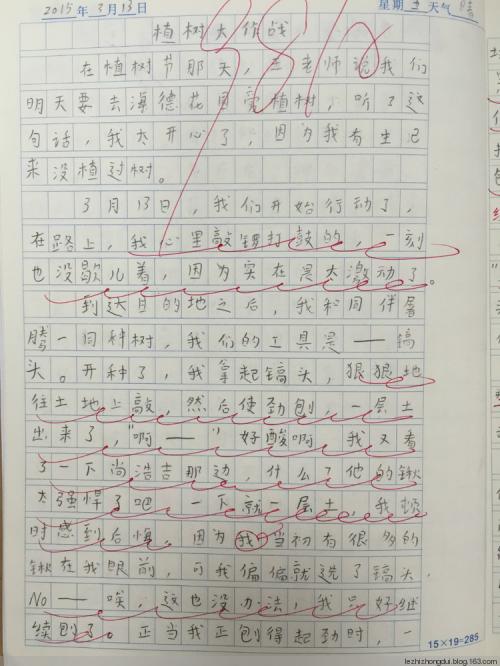 2015年3月13日 星期五天气晴
植树大作战
在植树节那天，王老师说我们
明天要去海德花园实植树，听了这
句话，我太开心了，因为我有生已
来没植过树。
3月13日，我们开始行动了，
在路上，我心里敲锣打鼓的，一刻
也没歇儿着，因为实在是太激动了。
到达目的地之后，我和同伴
腾一同种树，我们的工具是——镐
头。开种了，我拿起镐头，狠狠地
往土地上敲，然后使劲刨，一层土
出来了，"啊——"好酸啊，我又看
了一下尚浩吉那边，什么？他的锹
太强悍了吧，一下就一层土，我顿
时感到后悔，因为我当初有很多的
锹在我眼前，可我偏偏就选了镐头，
No——唉，这也没办法，我只好继
续刨了。正当我正刨得起劲时，一
15×19=285
lezhizhongdui.blog.163.com